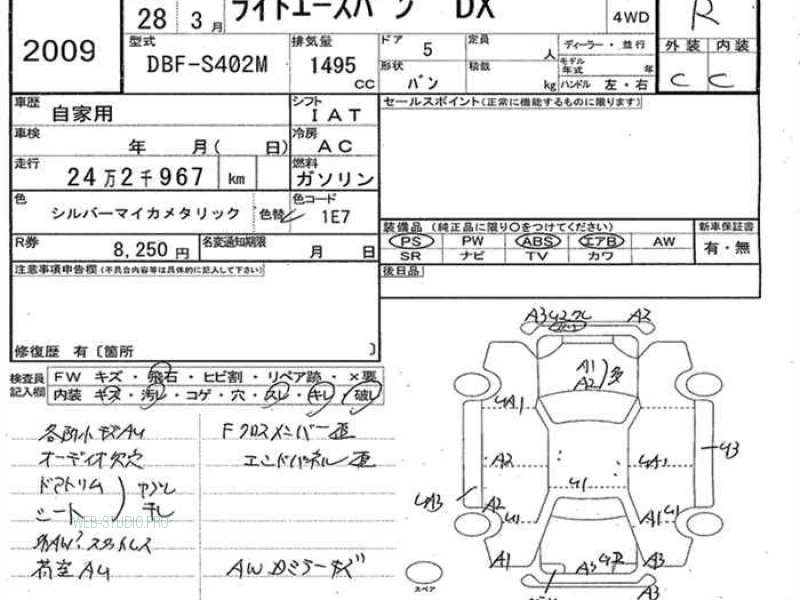 28 3月 ライトエースバン DX 4WD R
2009
型式 DBF-S402M 排気量 1495 CC
ドア 5 定員 人 ディーラー・並行
形状 バン 積載 kg モデル年式 年 ハンドル 左・右
外装 内装
C C
車歴 自家用 シフト IAT
車検 年 月( 日) 冷房 AC
走行 24万2千967 km 燃料 ガソリン
色 シルバーマイカメタリック 色替 色コード 1E7
R券 8,250円 名変通知期限 月 日
セールスポイント(正常に機能するものに限ります)
装備品 (純正品に限り○をつけてください) 新車保証書
PS PW ABS エアB AW 有・無
SR ナビ TV カワ
後日品
注意事項申告欄(不具合内容等は具体的に記入して下さい)
修復歴 有〔箇所 〕
検査員記入欄
FW キズ・飛石・ヒビ割・リペア跡・×要
内装 キズ・汚レ・コゲ・穴・スレ・キレ・破レ
各所小キズAU
オーディオ欠穴
ドアトリム
シート
荷室AU
Fクロスメンバー歪
エンドパネル歪
AWDミラーキズ
WEB-STUDIO.PRO
A3 A2
A1
A2 多
UA1
A2 UA1 U3
U1
UA3 A2 U1 A1 U1
A1 A3 A3
A3
スペア